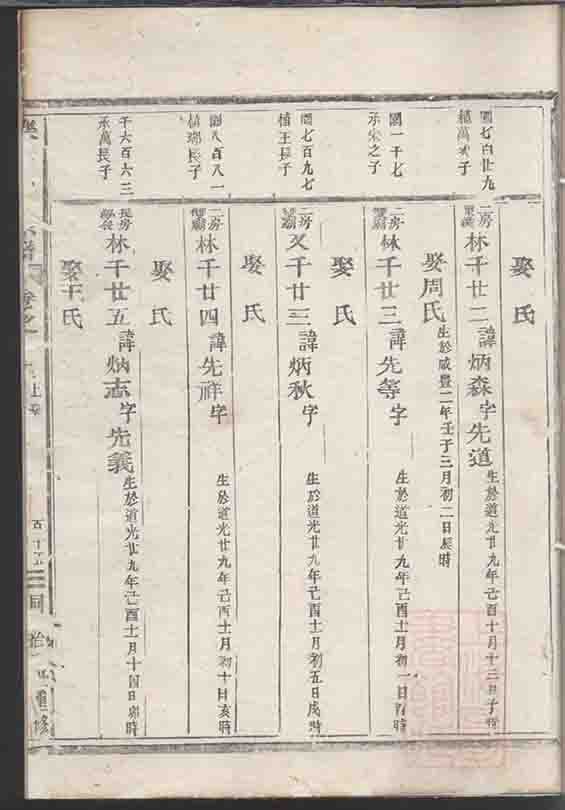 國七百廿九
植萬次子
二房
林千廿二諱炳森字先道
生於道光廿九年己酉十月十三日子時
娶氏
國一千七
承宋之子
二房
林千廿三諱先等字
生於道光廿九年己酉十一月初一日酉時
娶周氏
生於咸豐二年壬子三月初二日辰時
國七百九七
植王長子
二房
又千廿三諱炳秋字
生於道光廿九年己酉十一月初五日戌時
娶氏
國八百八一
植瑯長子
二房
林千廿四諱先祥字
生於道光廿九年己酉十一月初十日亥時
娶氏
千六百六三
承萬長子
長房
林千廿五諱炳志字先義
生於道光廿九年己酉十一月十四日卯時
娶王氏
卷之
上
五十五
同治
重修